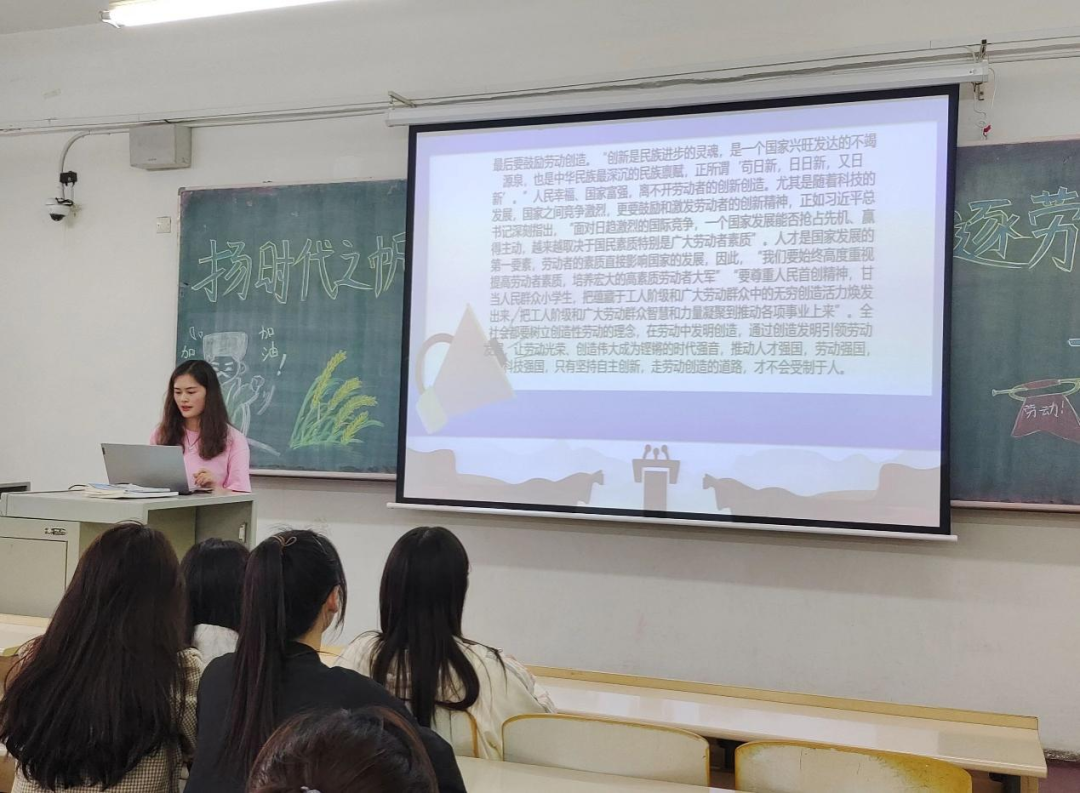 扬时代之帆
逐劳
加
加
油
!
最后要鼓励劳动创造。“创新是民族进步的灵魂，是一个国家兴旺发达的不竭
源泉，也是中华民族最深沉的民族禀赋，正所谓‘苟日新，日日新，又日
新’。”人民幸福、国家富强，离不开劳动者的创新创造。尤其是随着科技的
发展，国家之间竞争激烈，更要鼓励和激发劳动者的创新精神，正如习近平总
书记深刻指出，“面对日趋激烈的国际竞争，一个国家发展能否抢占先机、赢
得主动，越来越取决于国民素质特别是广大劳动者素质”。人才是国家发展的
第一要素，劳动者的素质直接影响国家的发展，因此，“我们要始终高度重视
提高劳动者素质，培养宏大的高素质劳动者大军”“要尊重人民首创精神，甘
当人民群众小学生，把蕴藏于工人阶级和广大劳动群众中的无穷创造活力焕发
出来，把工人阶级和广大劳动群众智慧和力量凝聚到推动各项事业上来”。全
社会都要树立创造性劳动的理念，在劳动中发明创造，通过创造发明引领劳动
发展，让劳动光荣、创造伟大成为铿锵的时代强音，推动人才强国，劳动强国，
科技强国，只有坚持自主创新，走劳动创造的道路，才不会受制于人。
劳动!